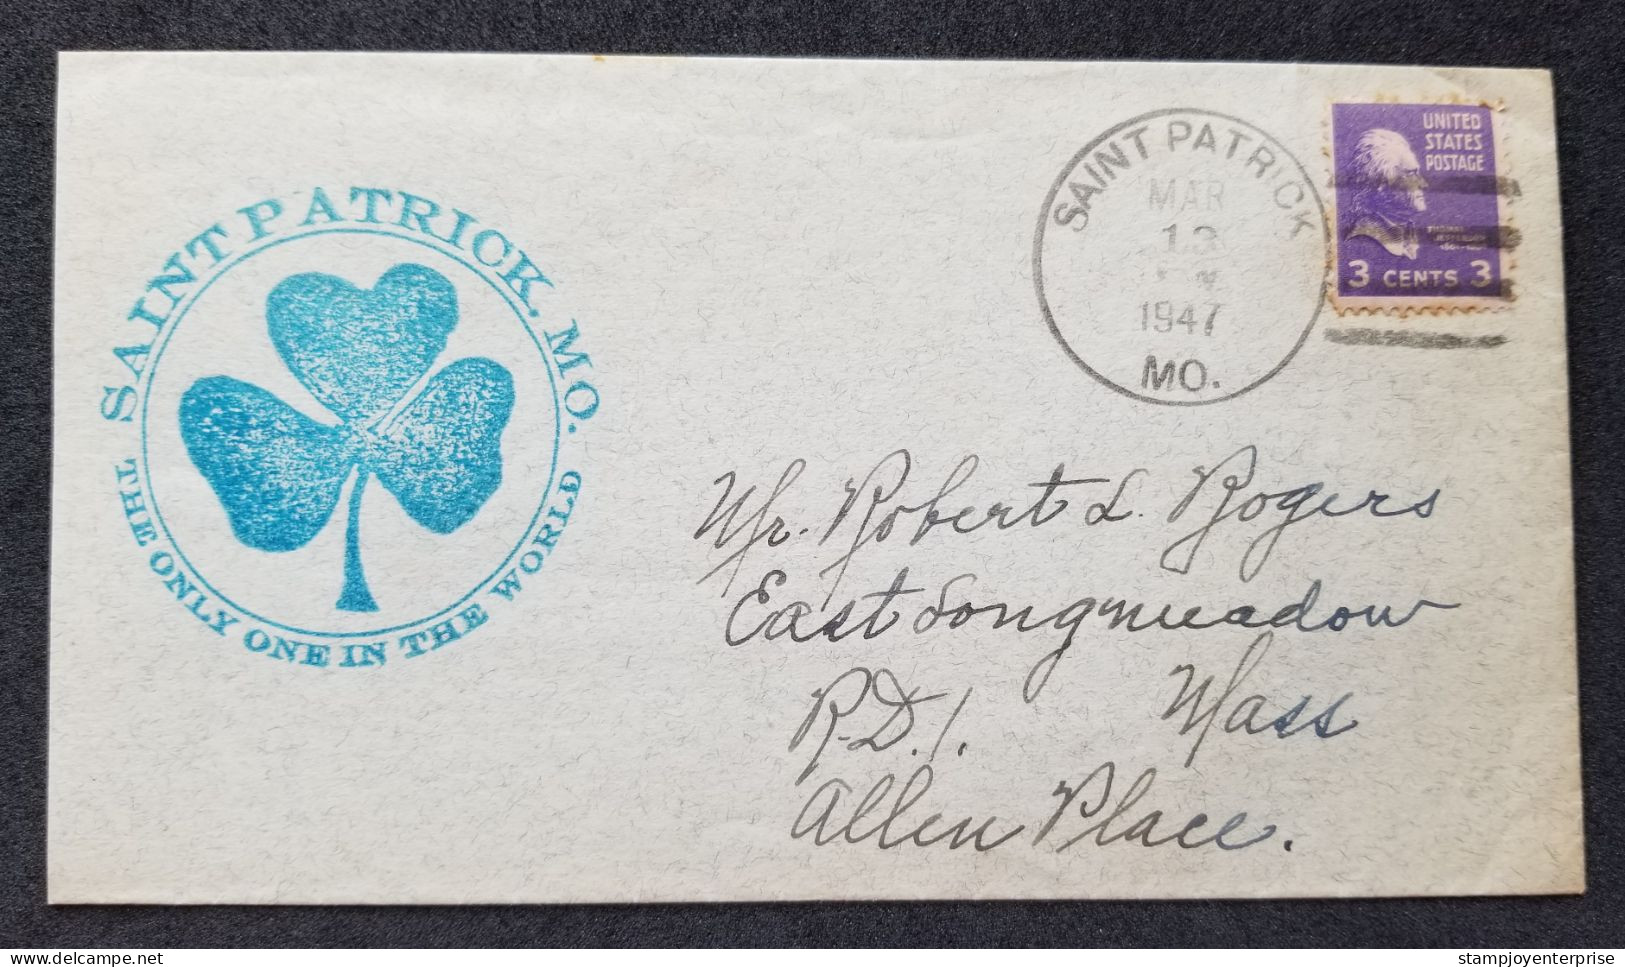 SAINT PATRICK, MO.
THE ONLY ONE IN THE WORLD
SAINT PATRICK
MAR
13
1947
MO.
UNITED
STATES
POSTAGE
THOMAS
JEFFERSON
3 CENTS 3
Mr. Robert L. Rogers
East Longmeadow
R.D.1. Mass
Allen Place.
stampjoyenterprise